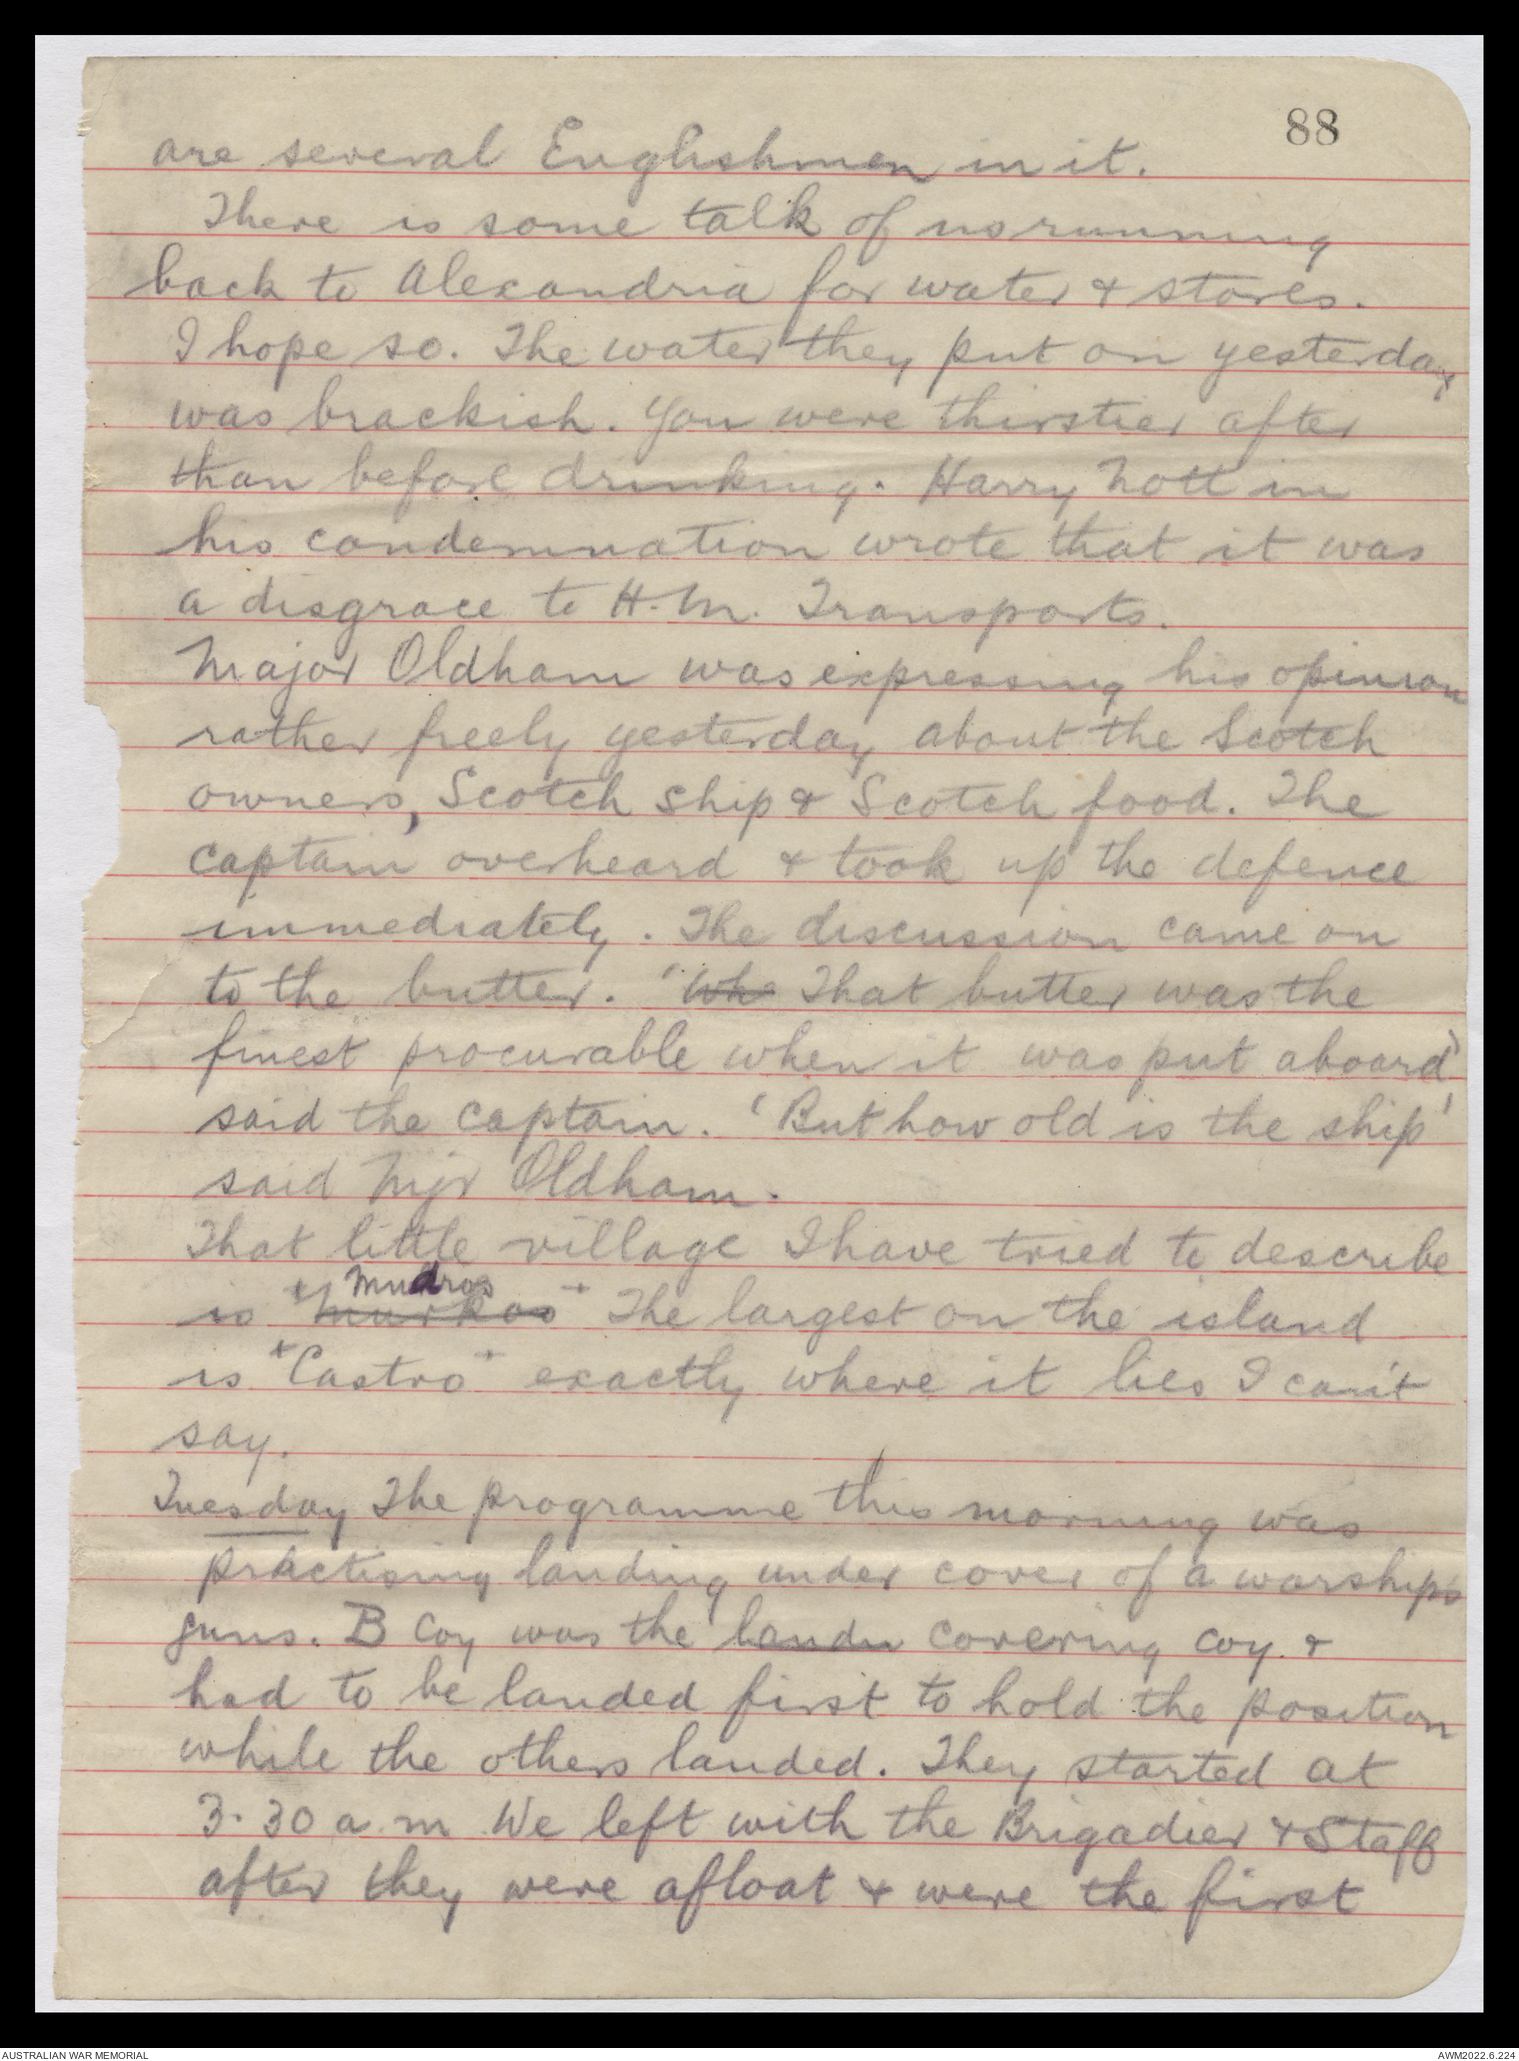 88
are several Englishmen in it.
There is some talk of us running
back to Alexandria for water & stores.
I hope so. The water they put on yesterday
was brackish. You were thirstier after
than before drinking. Harry Nott in
his condemnation wrote that it was
a disgrace to H.M. Transports.
Major Oldham was expressing his opinion
rather freely yesterday about the Scotch
owners, Scotch ship & Scotch food. The
captain overheard & took up the defence
immediately. The discussion came on
to the butter. 'Whe That butter was the
finest procurable when it was put aboard'
said the captain. 'But how old is the ship'
said Mjr Oldham.
That little village I have tried to describe
Mudros
is "Murkos" The largest on the island
is "Castro" exactly where it lies I can't
say.
Tuesday The programme this morning was
practising landing under cover of a warship's
guns. B Coy was the landin covering coy. &
had to be landed first to hold the position
while the others landed. They started at
3.30 a.m We left with the Brigadier & Staff
after they were afloat & were the first
AUSTRALIAN WAR MEMORIAL
AWM2022.6.224